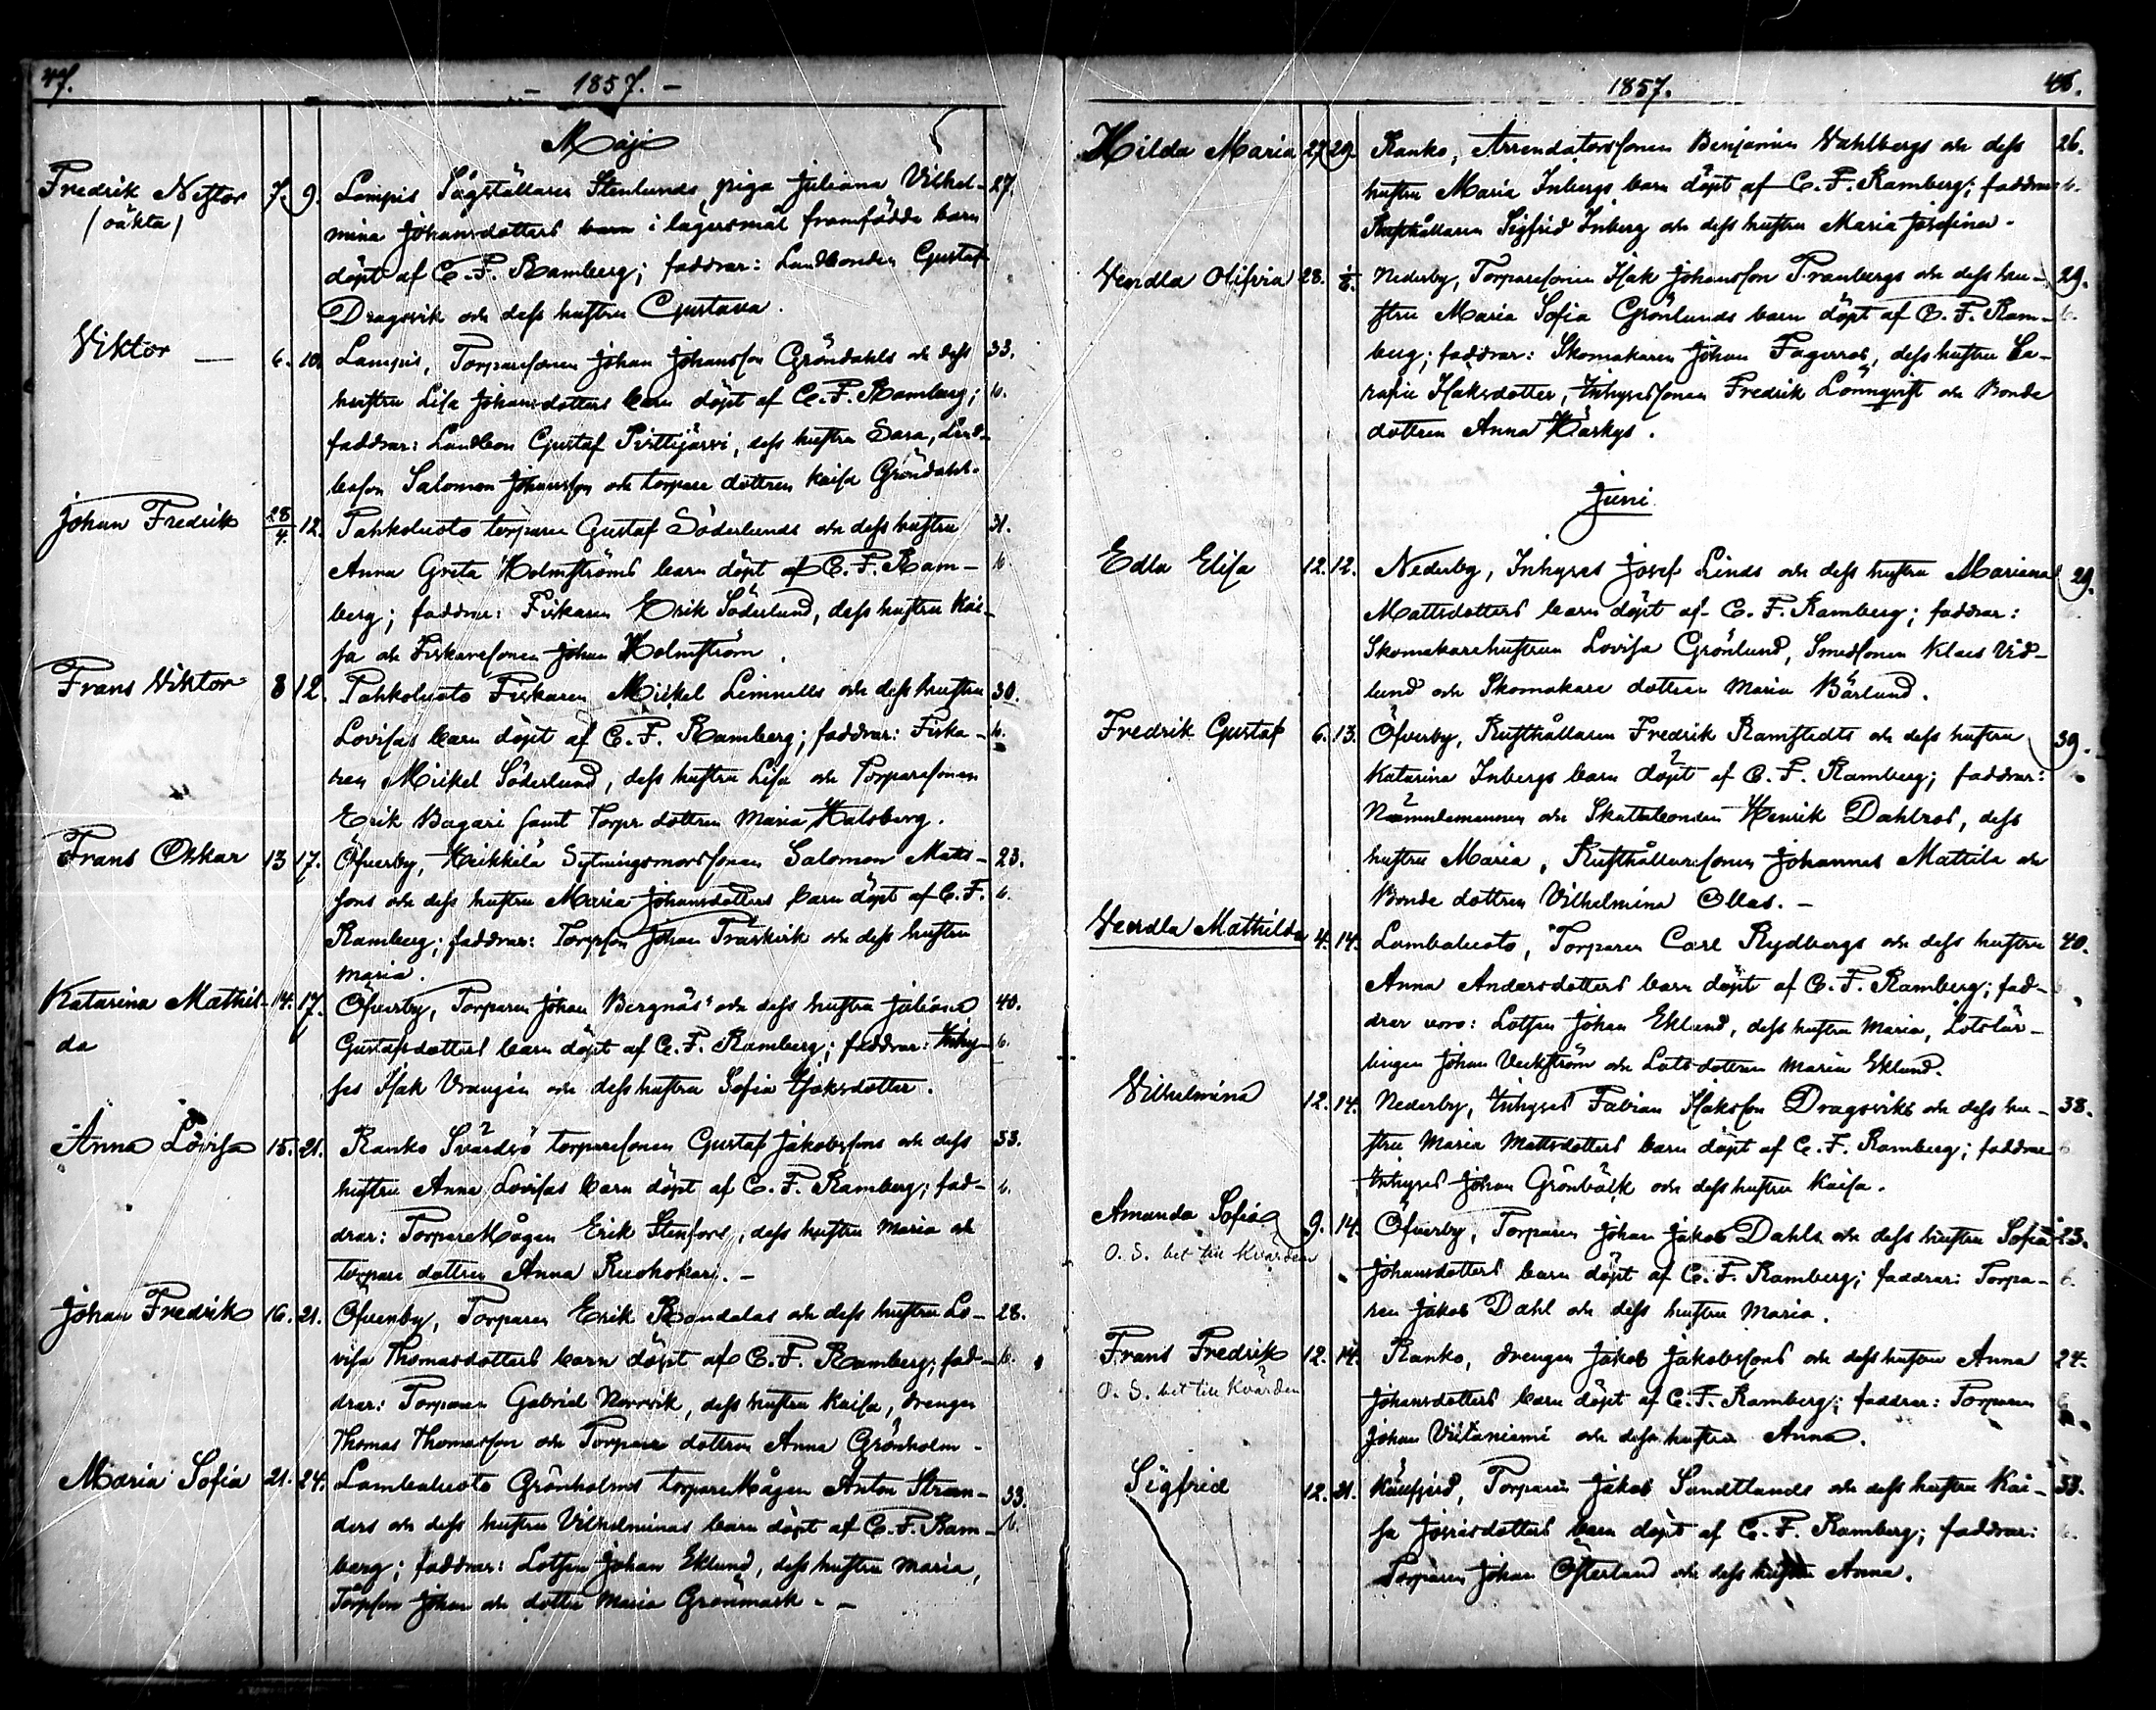 47.
- 1857. -
Maji
Fredrik Nestor 7. 9. Lampis Sågställaren Stenlunds piga Juliana Vilhel- 27.
/oäkta/ mina Johansdotters barn i lägersmål framfödda barn
döpt af C. F. Ramberg; faddrar: Landbonden Gustaf
Dragsvik och dess hustru Gustava.
Viktor — 6. 10. Lampis, Torparesonen Johan Johansson Gröndahls och dess 33.
hustru Lisa Johansdotters barn döpt af C. F. Ramberg; b.
faddrar: Landbon Gustaf Pirttijärvi, dess hustru Sara, Land-
boson Salomon Johansson och torpare dottren Kaisa Gröndahl.
Johan Fredrik 28/4. 12. Tahkoluoto torparen Gustaf Söderlunds och dess hustru 31.
Anna Greta Holmströms barn döpt af C. F. Ram- b
berg; faddrar: Fiskaren Erik Söderlund, dess hustru Kai-
sa och Fiskaresonen Johan Holmström.
Frans Viktor 8 12. Tahkoluoto Fiskaren Mickel Limnells och dess hustru 30.
Lovisas barn döpt af C. F. Ramberg; faddrar: Fiska- b.
ren Mickel Söderlund, dess hustru Lisa och Torparesonen
Erik Bagari samt Torpr dottren Maria Halsberg.
Frans Oskar 13 17. Öfverby, Heikkilä Sytningsmorssonen Salomon Mats- 23.
sons och dess hustru Maria Johansdotters barn döpt af C. F. b.
Ramberg; faddrar: Torpson Johan Träskvik och dess hustru
Maria.
Katarina Mathil- 14. 17. Öfverby, Torparen Johan Bergnäs' och dess hustru Juliana 40.
da Gustafsdotters barn döpt af C. F. Ramberg; faddrar: Inhy- b.
ses Isak Vrangén och dess hustru Sofia Isaksdotter.
Anna Lovisa 15. 21. Ranko Svärdsö torparesonen Gustaf Jakobssons och dess 33.
hustru Anna Lovisas barn döpt af C. F. Ramberg; fad- b.
drar: Torparemågen Erik Stenfors, dess hustru Maria och
torpare dottren Anna Ruohokari. -
Johan Fredrik 16. 21. Öfverby, Torparen Erik Rondalas och dess hustru Lo- 28.
visa Thomasdotters barn döpt af C. F. Ramberg; fad- b.
drar: Torparen Gabriel Norrvik, dess hustru Kaisa, drengen
Thomas Thomasson och Torpare dottren Anna Grönholm -
Maria Sofia 21. 24. Lambaluoto Grönholms torparemågen Anton Stran- 33.
ders och dess hustru Vilhelminas barn döpt af C. F. Ram- b.
berg; faddrar: Lotsen Johan Eklund, dess hustru Maria,
Torpson Johan och dotter Maria Grönmark. -
1857.
48.
Hilda Maria 27 29. Ranko, Arrendatorssonen Benjamin Wahlbergs och dess 26.
hustru Maria Inbergs barn döpt af C. F. Ramberg; faddrar b.
Rusthållaren Sigfrid Inberg och dess hustru Maria Josefina.
Vendla Olifvia 28. 1/6. Nederby, Torparesonen Isak Johansson Tranbergs och dess hu- 29.
stru Maria Sofia Grönlunds barn döpt af C. F. Ram- b.
berg; faddrar: Skomakaren Johan Fagerros, dess hustru
Isaksdotter, Inhysessonen Fredrik Lönnqvist och Bonde
dottren Anna Härkys.
Juni
Edla Elisa 12. 12. Nederby, Inhyses Josef Linds och dess hustru Mariana 29.
Mattsdotters barn döpt af C. F. Ramberg; faddrar: b.
Skomakarehustrun Lovisa Grönlund, Smedsonen Klaes Vid-
lund och Skomakare dottren Maria Bärlund.
Fredrik Gustaf 6. 13. Öfverby, Rusthållaren Fredrik Ramstedts och dess hustru 39.
Katarina Inbergs barn döpt af C. F. Ramberg; faddrar:
Nämndemannen och Skattebonden Henrik Dahlros, dess
hustru Maria, Rusthållaresonen Johannes Mattila och
Bonde dottren Vilhelmina Ollas. -
Vendla Mathilda 4. 14. Lambaluoto, Torparen Carl Rydbergs och dess hustru 40.
Anna Andersdotters barn döpt af C. F. Ramberg; fad-
drar voro: Lotsen Johan Eklund, dess hustru Maria, Lotslär-
lingen Johan Veckström och Lots dottren Maria Eklund.
Vilhelmina 12. 14. Nederby, Inhyses Fabian Isaksson Dragsviks och dess hu- 38.
stru Maria Mattsdotters barn döpt af C. F. Ramberg; faddrar b
Inhyses Johan Grönbäck och dess hustru Kaisa.
Amanda Sofia 9. 14. Öfverby, Torparen Johan Jakob Dahls och dess hustru Sofia 23.
O. S. bet till Kvarden Johansdotters barn döpt af C. F. Ramberg; faddrar: Torpa- b.
ren Jakob Dahl och dess hustru Maria.
Frans Fredrik 12. 14. Ranko, drengen Jakob Jakobssons och dess hustru Anna 24.
O. S. bet till Kvarden Johansdotters barn döpt af C. F. Ramberg; faddrar: Torparen b
Johan Viitaniemi och dess hustru Anna.
Sigfrid 12. 21. Torparen Jakob Sundtlunds och dess hustru Kai- 33.
sa Jöransdotters barn döpt af C. F. Ramberg; faddrar: b.
Torparen Johan Österlund och dess hustru Anna.